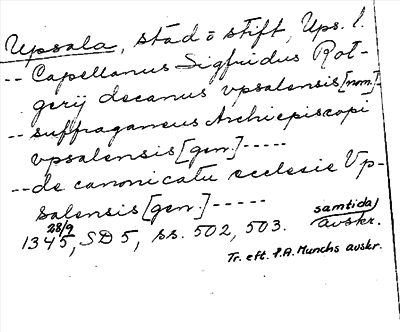 Upsala, stad o stift, Ups. l.
-- Capellanus Sigfridus Rot-
gerij decanus vpsalensis [nom.]-
-- suffraganeus Archiepiscopi
vpsalensis [gen.] -----
-- de canonicatu ecclesie Vp-
salensis [gen.] -----
28/9
1345, SD 5, ss. 502, 503.
samtida
avskr.
Tr. eft. P. A. Munchs avskr.